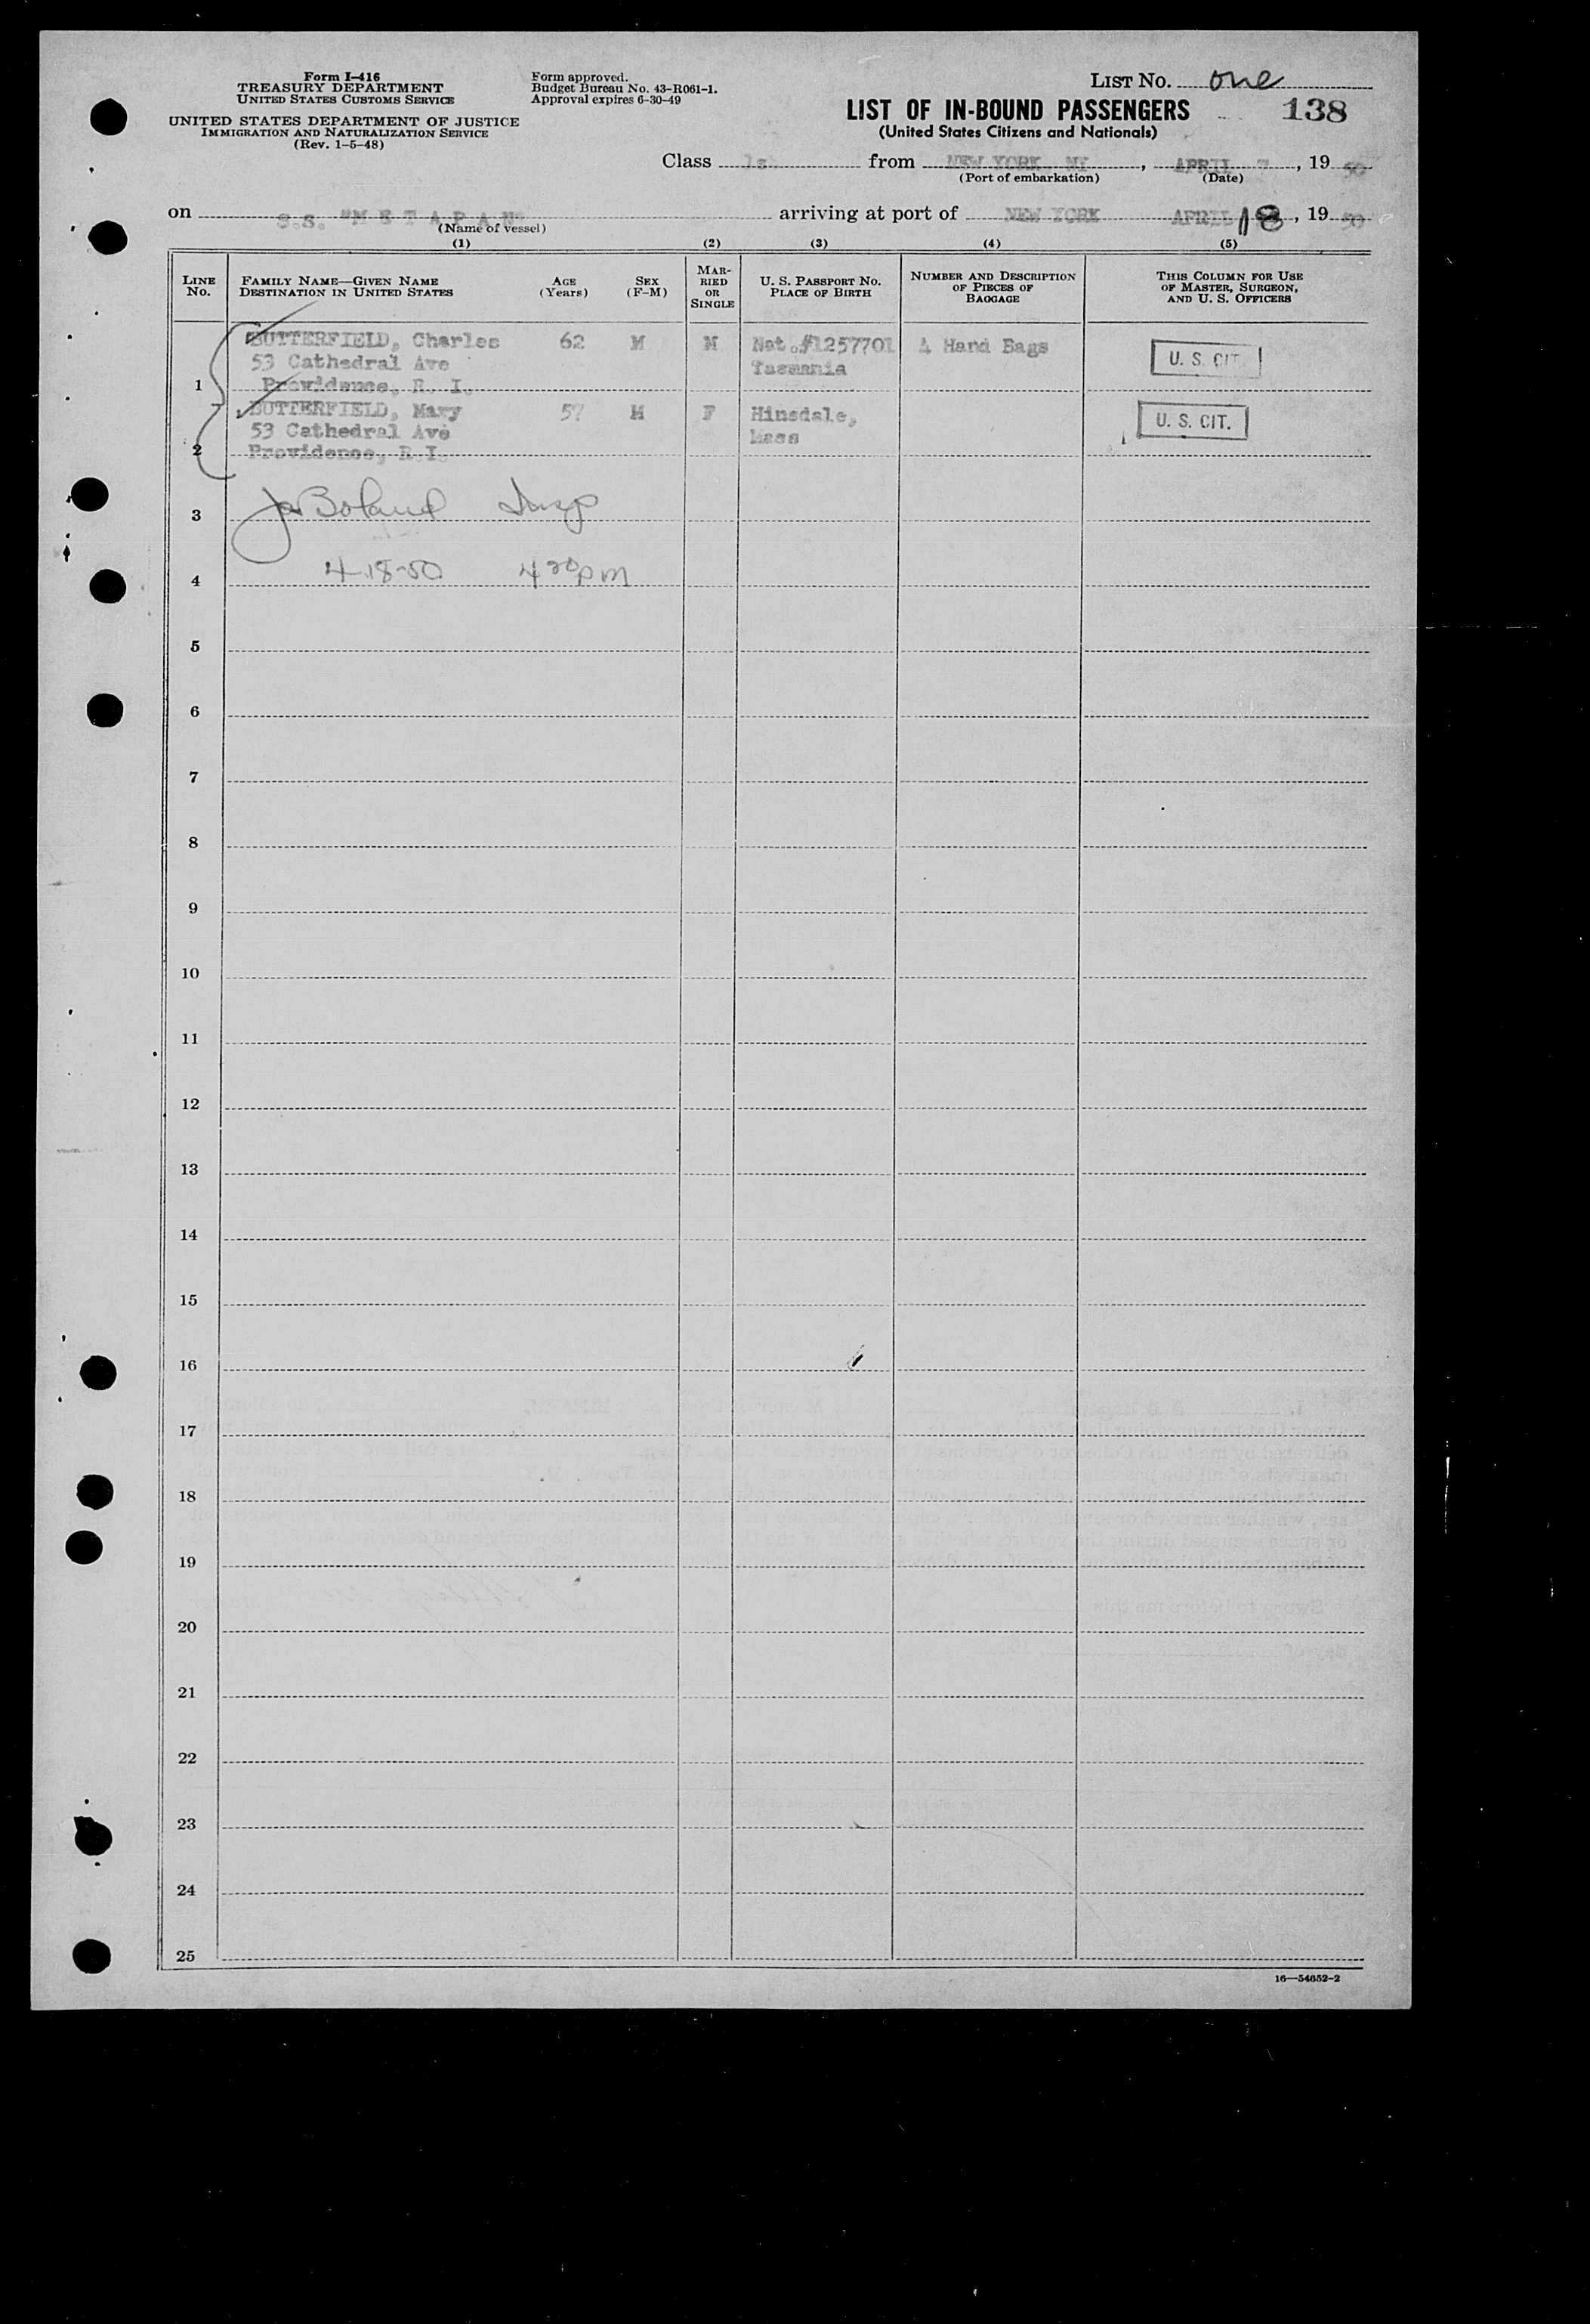 Form I-416
TREASURY DEPARTMENT
UNITED STATES CUSTOMS SERVICE
UNITED STATES DEPARTMENT OF JUSTICE
IMMIGRATION AND NATURALIZATION SERVICE
(Rev. 1-5-48)
Form approved.
Budget Bureau No. 43-R061-1.
Approval expires 6-30-49
LIST NO. one
LIST OF IN-BOUND PASSENGERS 138
(United States Citizens and Nationals)
Class from NEW YORK NY, APRIL 7, 19 50
(Port of embarkation) (Date)
on S.S. "METAPAN" arriving at port of NEW YORK APRIL 18, 19 50
(Name of vessel)
(1) (2) (3) (4) (5)
LINE No. FAMILY NAME—GIVEN NAME DESTINATION IN UNITED STATES AGE (Years) SEX (F-M) MARRIED OR SINGLE U. S. PASSPORT NO. PLACE OF BIRTH NUMBER AND DESCRIPTION OF PIECES OF BAGGAGE THIS COLUMN FOR USE OF MASTER, SURGEON, AND U. S. OFFICERS
BUTTERFIELD, Charles 62 M M Nat.#1257701 4 Hand Bags U. S. CIT
53 Cathedral Ave Tasmania
1 Providence, R. I.
BUTTERFIELD, Mary 57 M F Hinsdale, U. S. CIT.
53 Cathedral Ave Mass
2 Providence, R.I.
3 Boland Insp
4 4-18-50 4 20 pm
5
6
7
8
9
10
11
12
13
14
15
16
17
18
19
20
21
22
23
24
25
16—54652-2